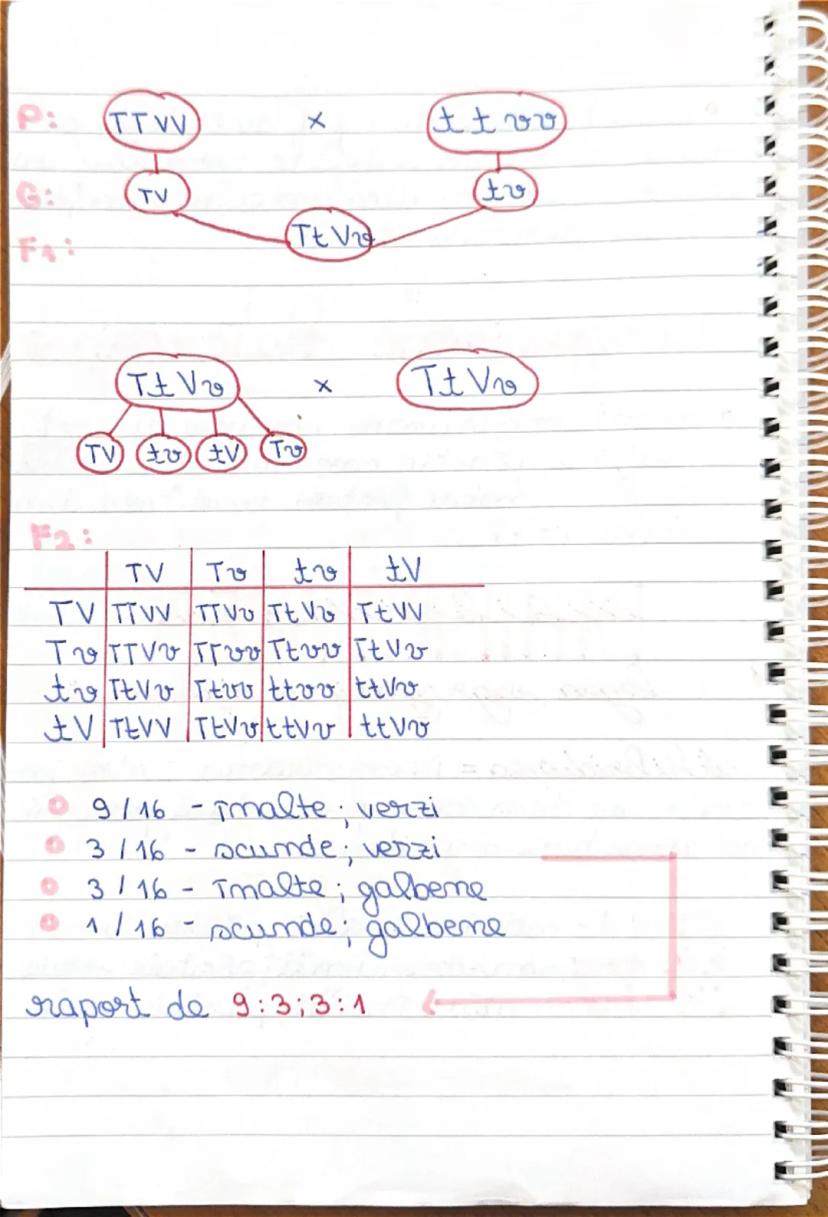 P: TTVV x ttvv
G: TV tv
F1: TtVv
TtVv x TtVv
TV tv tV Tv
F2:
TV Tv tv tV
TV TTVV TTVv TtVv TtVV
Tv TTVv TTvv Ttvv TtVv
tv TtVv Ttvv ttvv ttVv
tV TtVV TtVv ttVv ttVv
9/16 - înalte; verzi
3/16 - scunde; verzi
3/16 - înalte; galbene
1/16 - scunde; galbene
raport de 9:3;3:1